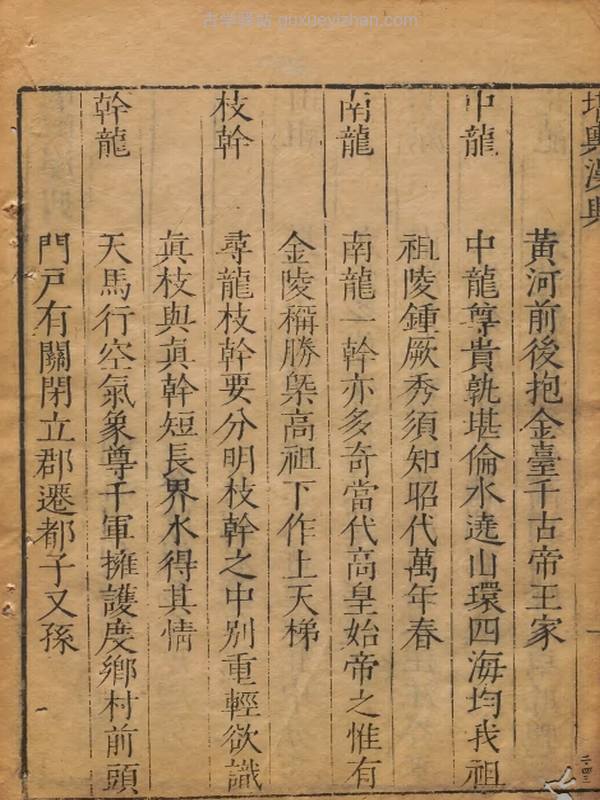 古学驿站 guxueyizhan.com
黃河前後抱金臺千古帝王家
中龍　中龍尊貴孰堪倫水遶山環四海均我祖
祖陵鍾厥秀須知昭代萬年春
南龍　南龍一幹亦多奇當代高皇始帝之惟有
金陵稱勝槩高祖下作上天梯
枝幹　尋龍枝幹要分明枝幹之中別重輕欲識
真枝與真幹短長界水得其情
幹龍　天馬行空氣象尊千軍擁護度鄉村前頭
門戶有關閉立郡遷都子又孫
二四三